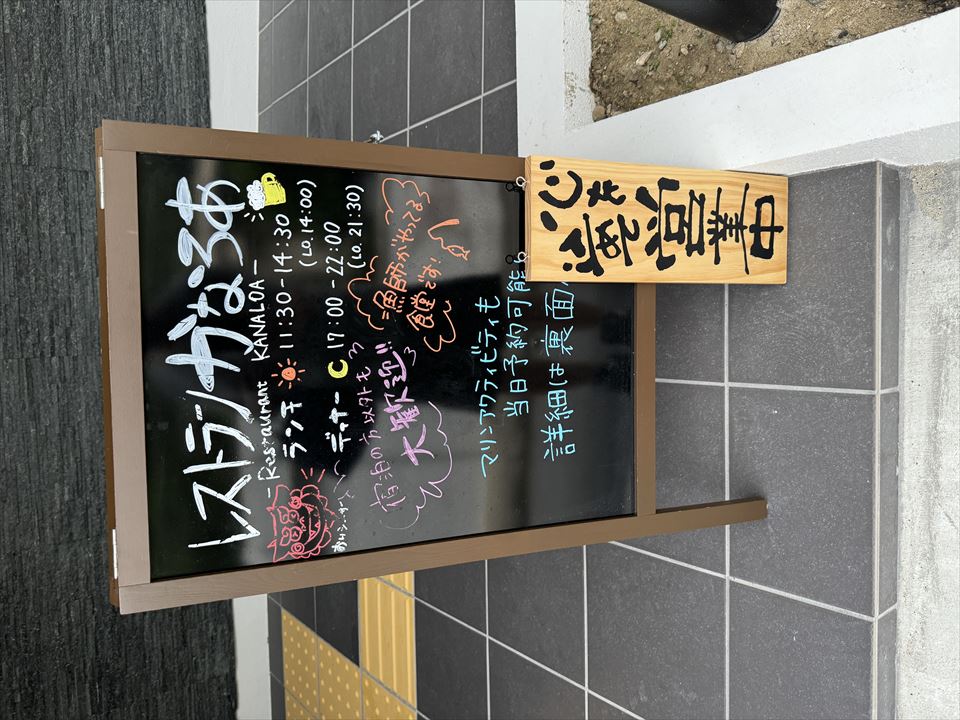 レストランかなろあ
- Restaurant KANALOA -
ランチ 11:30 - 14:30
(LO.14:00)
ディナー 17:00 - 22:00
(LO.21:30)
宿泊の方以外も
大歓迎!!
漁師がやってる
食堂です!
マリンアクティビティも
当日予約可能
詳細は裏面
心を込めて
営業中